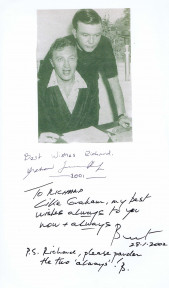 Best Wishes Richard.
Graham
2001.
To Richard
Like Graham, my best
wishes always to you
now + always
Burt
28-1-2002
P.S. Richard, please pardon
the two 'always'! B.